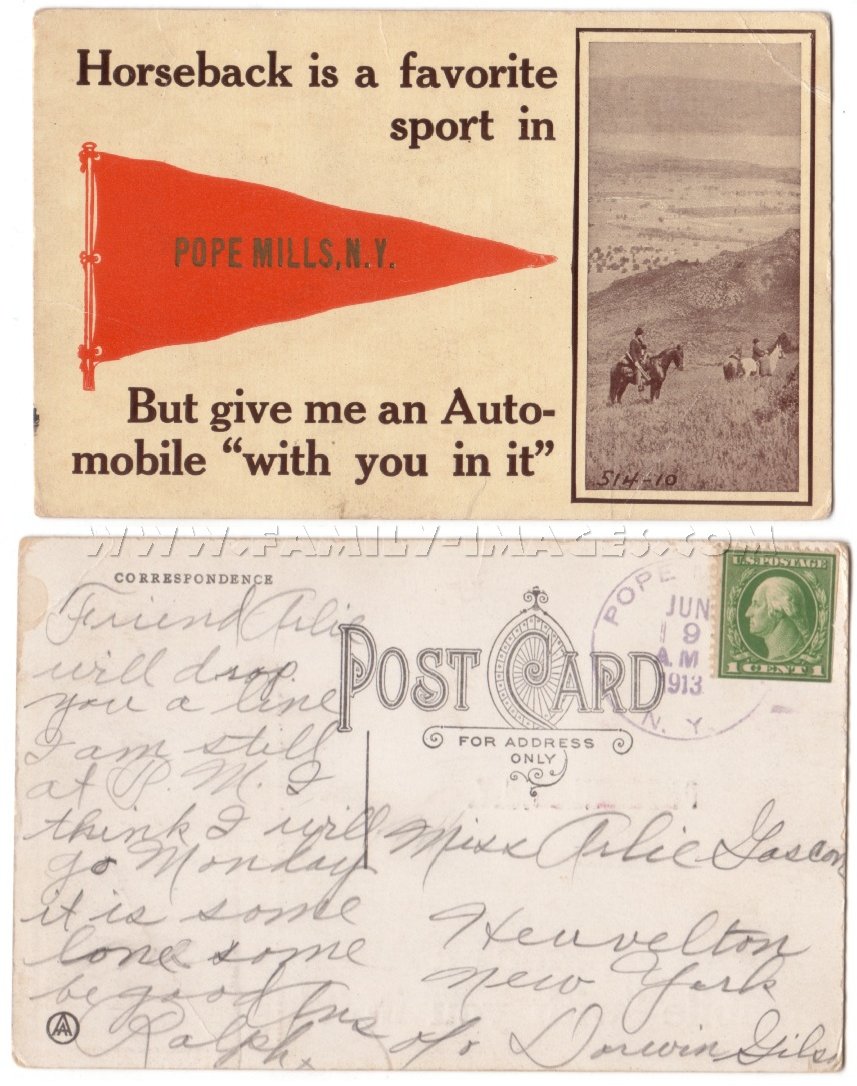 Horseback is a favorite
sport in
POPE MILLS, N.Y.
But give me an Auto-
mobile “with you in it”
514-10
WWW.FAMILY-IMAGES.COM
CORRESPONDENCE
Friend Arlie
will drop
you a line
I am still
at P. M. I
think I will
go Monday
it is some
lone some
be good
Ans
Ralph
POST CARD
FOR ADDRESS
ONLY
POPE
JUN
9
A.M
1913
N.Y.
U.S. POSTAGE
1 CENT 1
Miss Arlie Gascon
Heuvelton
New York
c/o Dorwin Gils